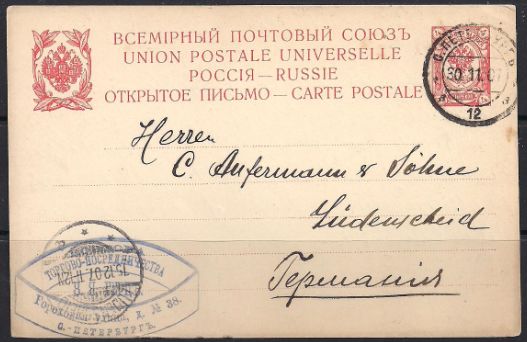 ВСЕМІРНЫЙ ПОЧТОВЫЙ СОЮЗЪ
UNION POSTALE UNIVERSELLE
РОССІЯ — RUSSIE
ОТКРЫТОЕ ПИСЬМО — CARTE POSTALE
30.11.07
12
Herren
C. Aufermann & Söhne
Lüdenscheid
Германія
ТОРГОВО-ПОСРЕДНИЧЕСТВА
15.12.07
Гороховая д. № 38.
С.-ПЕТЕРБУРГЪ.